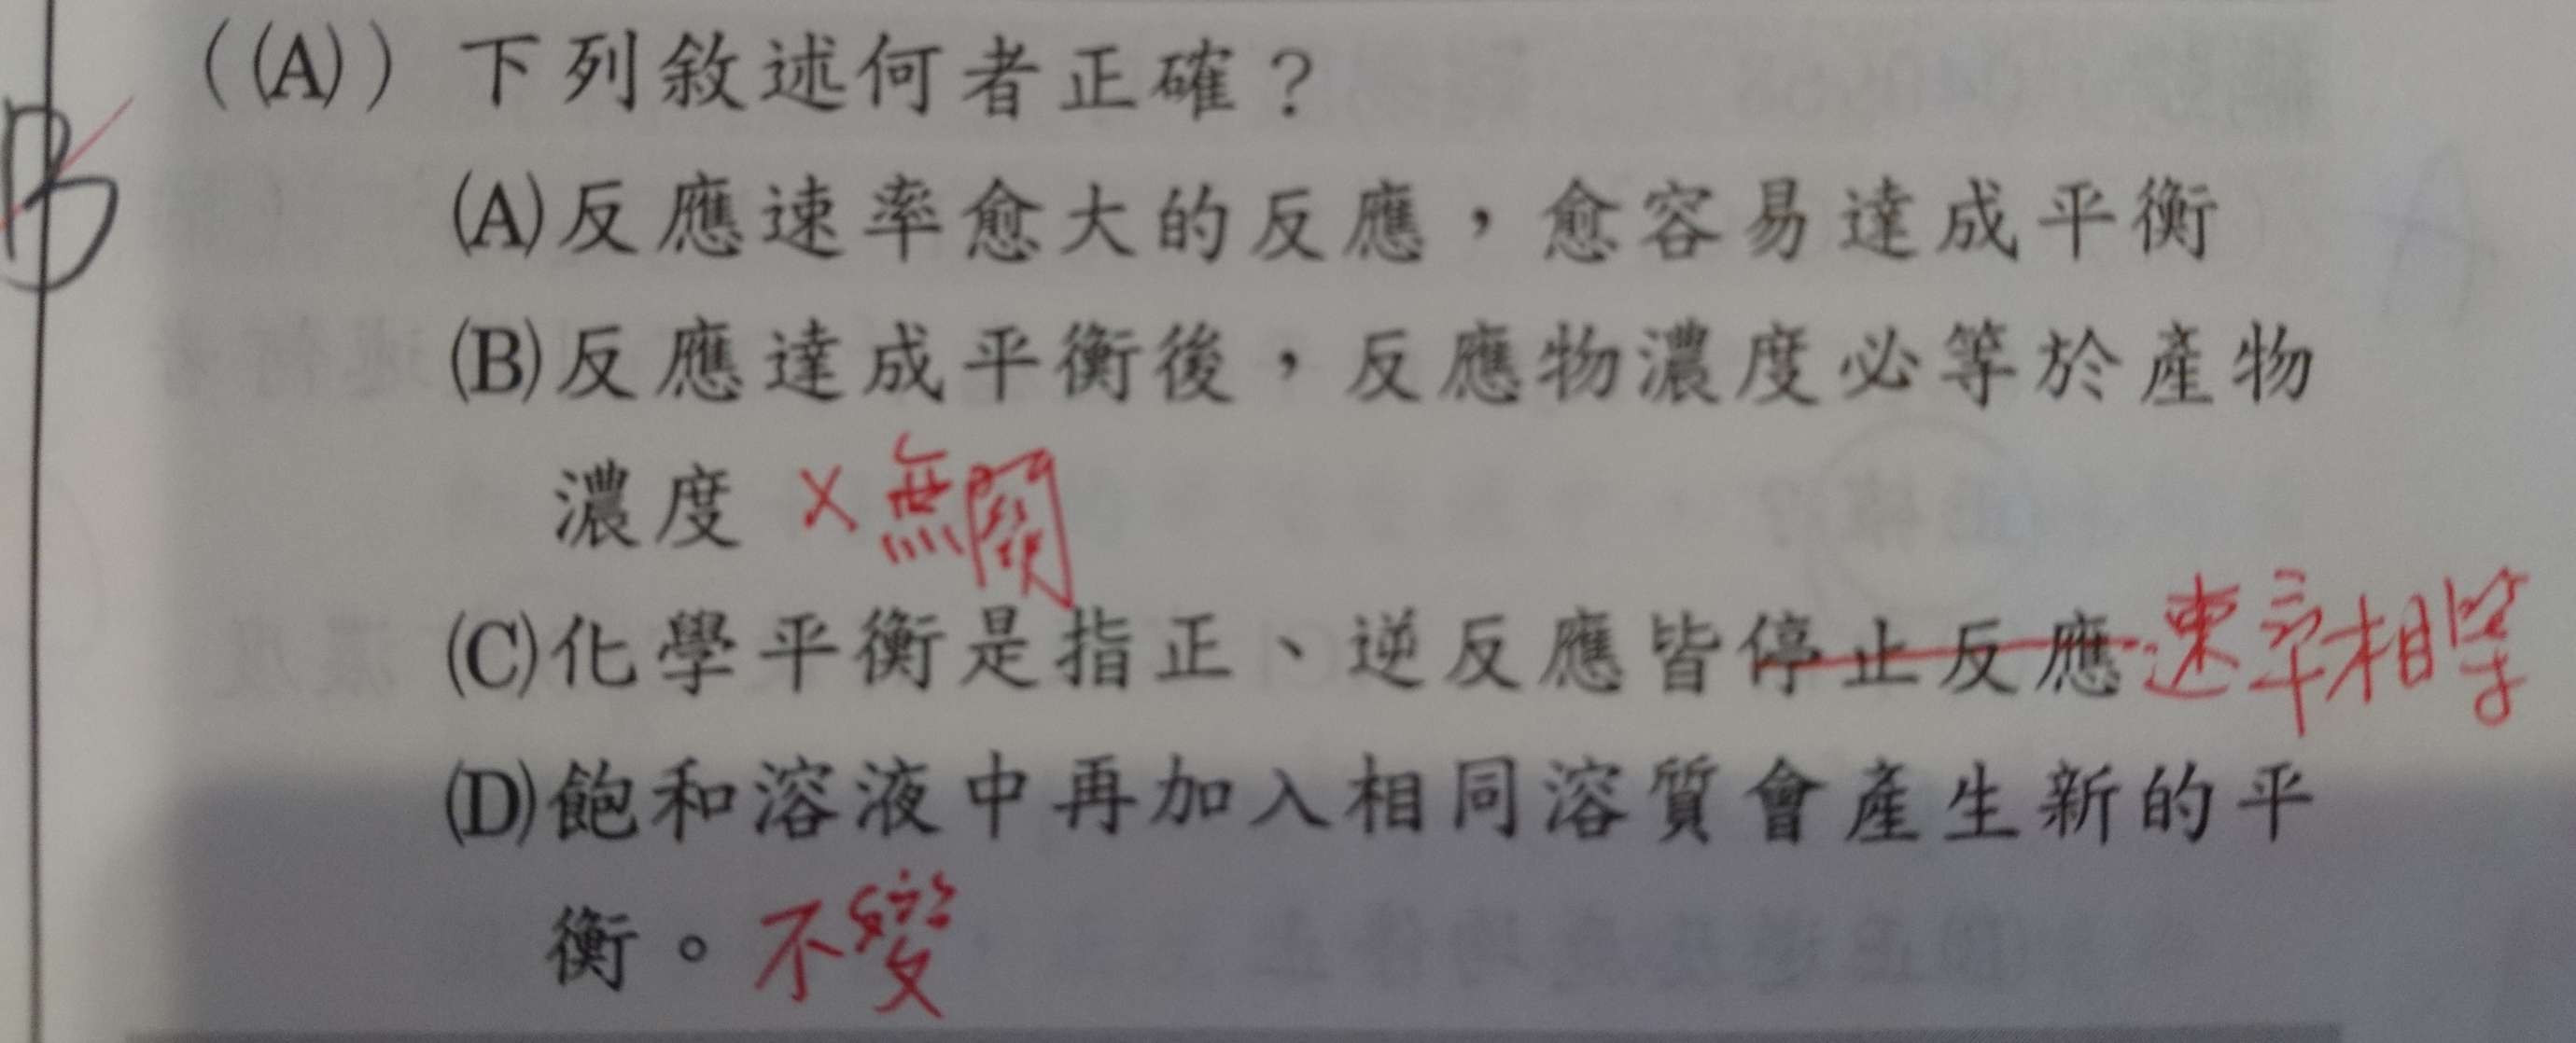 ((A)) 下列敘述何者正確？
B
(A)反應速率愈大的反應，愈容易達成平衡
(B)反應達成平衡後，反應物濃度必等於產物
濃度 ×無關
(C)化學平衡是指正、逆反應皆停止反應 速率相等
(D)飽和溶液中再加入相同溶質會產生新的平
衡。不變